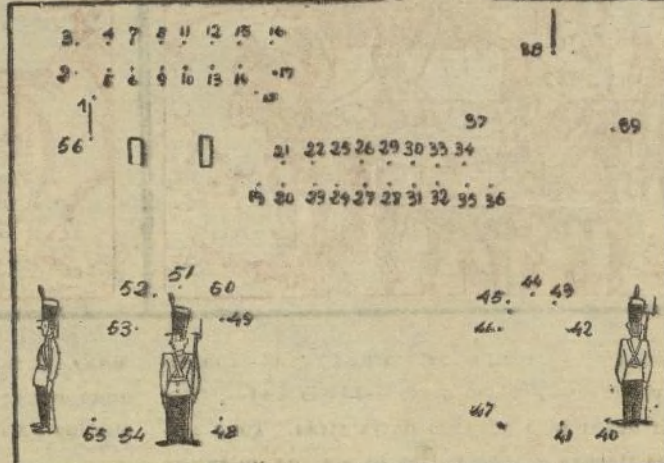 3. 4 7 8 11 12 15 16 38
2. 5 6 9 10 13 14 17
1
56 37 39
21 22 25 26 29 30 33 34
19 20 23 24 27 28 31 32 35 36
52 51 50 45 44 43
53 49 46 42
55 54 48 47 41 40